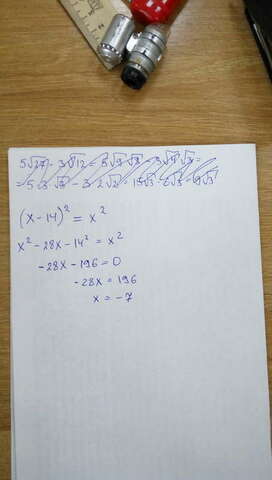 5√27 - 3√12 = 5√9·√3 - 3√4·√3 =
= 5·3·√3 - 3·2√2 = 15√3 - 6√3 = 9√3
(x-14)² = x²
x² - 28x - 14² = x²
-28x - 196 = 0
-28x = 196
x = -7